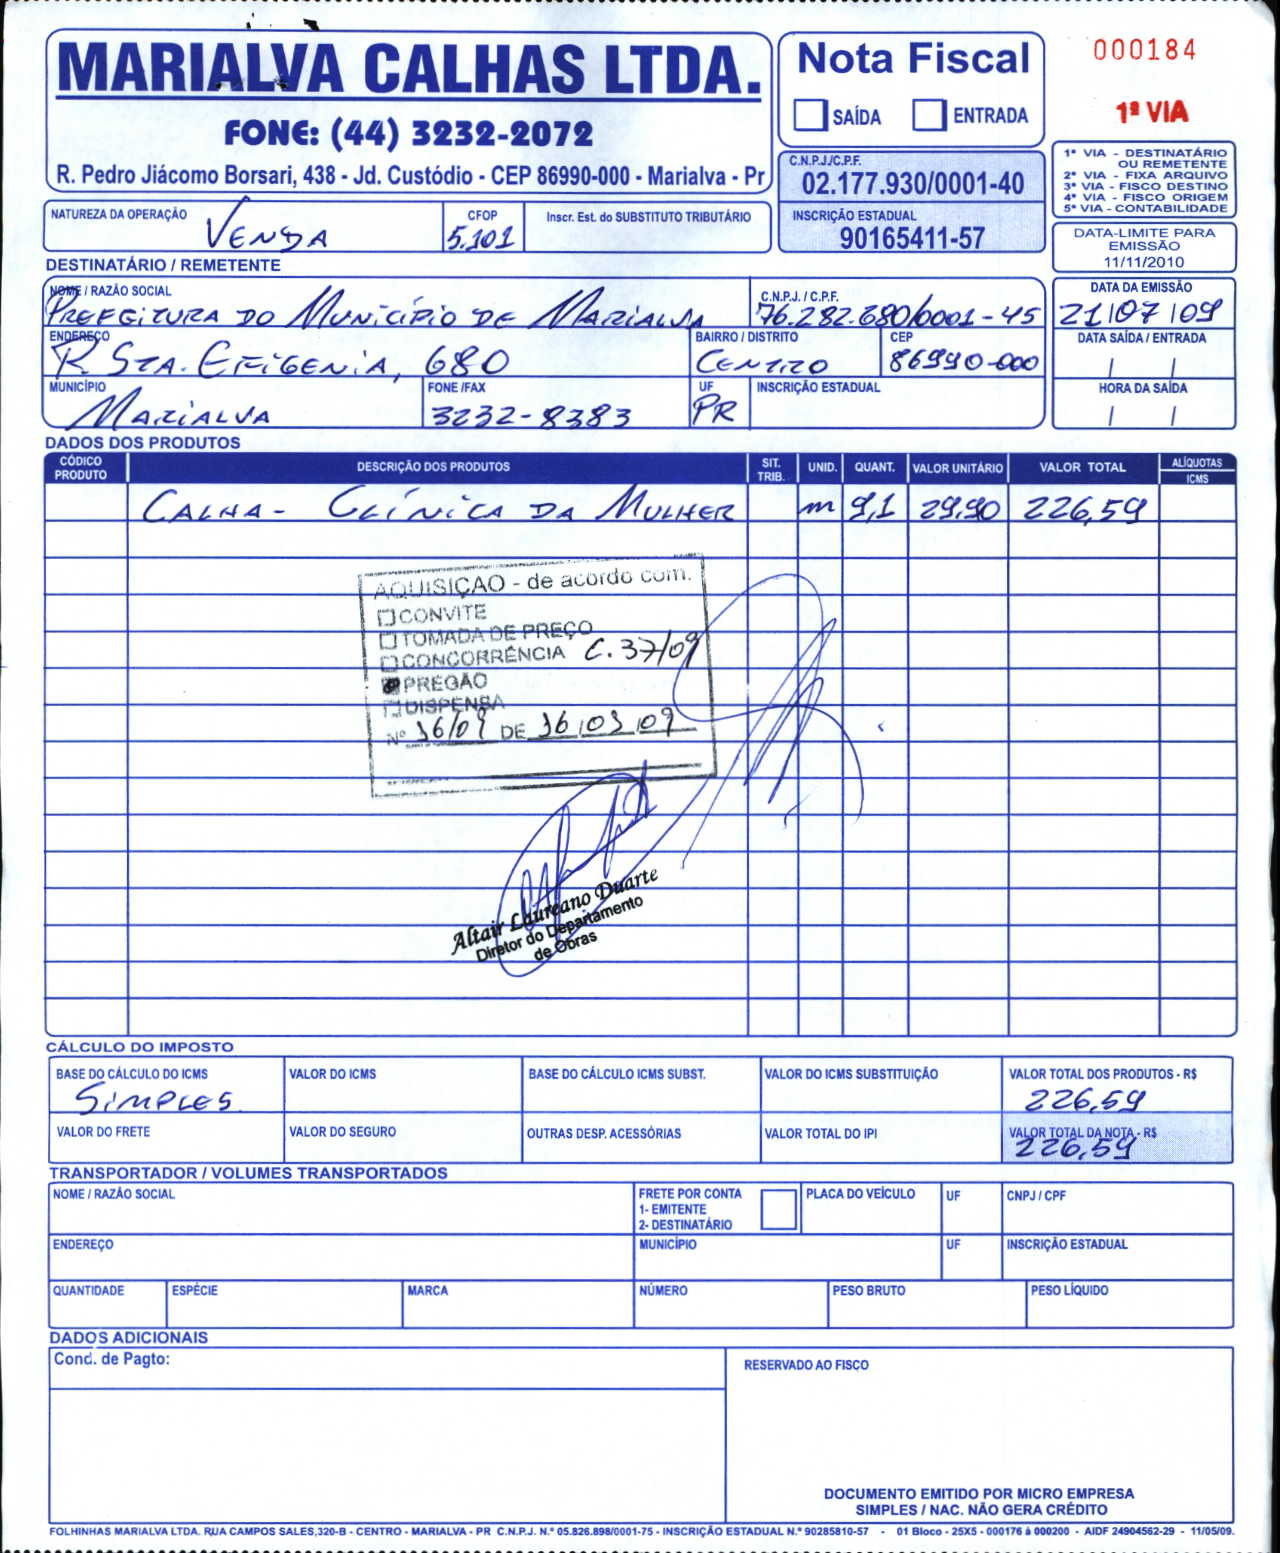 MARIALVA CALHAS LTDA.
FONE: (44) 3232-2072
R. Pedro Jiácomo Borsari, 438 - Jd. Custódio - CEP 86990-000 - Marialva - Pr
Nota Fiscal
SAÍDA ENTRADA
000184
1ª VIA
C.N.P.J./C.P.F.
02.177.930/0001-40
INSCRIÇÃO ESTADUAL
90165411-57
1ª VIA - DESTINATÁRIO
OU REMETENTE
2ª VIA - FIXA ARQUIVO
3ª VIA - FISCO DESTINO
4ª VIA - FISCO ORIGEM
5ª VIA - CONTABILIDADE
NATUREZA DA OPERAÇÃO CFOP Inscr. Est. do SUBSTITUTO TRIBUTÁRIO
VENDA 5.101
DATA-LIMITE PARA
EMISSÃO
11/11/2010
DESTINATÁRIO / REMETENTE
NOME / RAZÃO SOCIAL C.N.P.J. / C.P.F. DATA DA EMISSÃO
PREFEITURA DO MUNICÍPIO DE MARIALVA 76.282.680/0001-45 21/07/09
ENDEREÇO BAIRRO / DISTRITO CEP DATA SAÍDA / ENTRADA
R. STA. EFIGENIA, 680 CENTRO 86990-000 / /
MUNICÍPIO FONE /FAX UF INSCRIÇÃO ESTADUAL HORA DA SAÍDA
MARIALVA 3232-8383 PR / /
DADOS DOS PRODUTOS
CÓDICO PRODUTO DESCRIÇÃO DOS PRODUTOS SIT. TRIB. UNID. QUANT. VALOR UNITÁRIO VALOR TOTAL ALÍQUOTAS ICMS
CALHA - CLÍNICA DA MULHER m 9,1 29,90 226,59
AQUISIÇÃO - de acordo com.
CONVITE
TOMADA DE PREÇO
CONCORRÊNCIA C. 37/09
PREGÃO
DISPENSA
Nº 36/09 DE 16/03/09
Altair Laureano Duarte
Diretor do Departamento
de Obras
CÁLCULO DO IMPOSTO
BASE DO CÁLCULO DO ICMS VALOR DO ICMS BASE DO CÁLCULO ICMS SUBST. VALOR DO ICMS SUBSTITUIÇÃO VALOR TOTAL DOS PRODUTOS - R$
SIMPLES 226,59
VALOR DO FRETE VALOR DO SEGURO OUTRAS DESP. ACESSÓRIAS VALOR TOTAL DO IPI VALOR TOTAL DA NOTA - R$
226,59
TRANSPORTADOR / VOLUMES TRANSPORTADOS
NOME / RAZÃO SOCIAL FRETE POR CONTA PLACA DO VEÍCULO UF CNPJ / CPF
1- EMITENTE
2- DESTINATÁRIO
ENDEREÇO MUNICÍPIO UF INSCRIÇÃO ESTADUAL
QUANTIDADE ESPÉCIE MARCA NÚMERO PESO BRUTO PESO LÍQUIDO
DADOS ADICIONAIS
Cond. de Pagto: RESERVADO AO FISCO
DOCUMENTO EMITIDO POR MICRO EMPRESA
SIMPLES / NAC. NÃO GERA CRÉDITO
FOLHINHAS MARIALVA LTDA. RUA CAMPOS SALES,320-B - CENTRO - MARIALVA - PR C.N.P.J. N.º 05.826.898/0001-75 - INSCRIÇÃO ESTADUAL N.º 90285810-57 - 01 Bloco - 25X5 - 000176 à 000200 - AIDF 24904562-29 - 11/05/09.